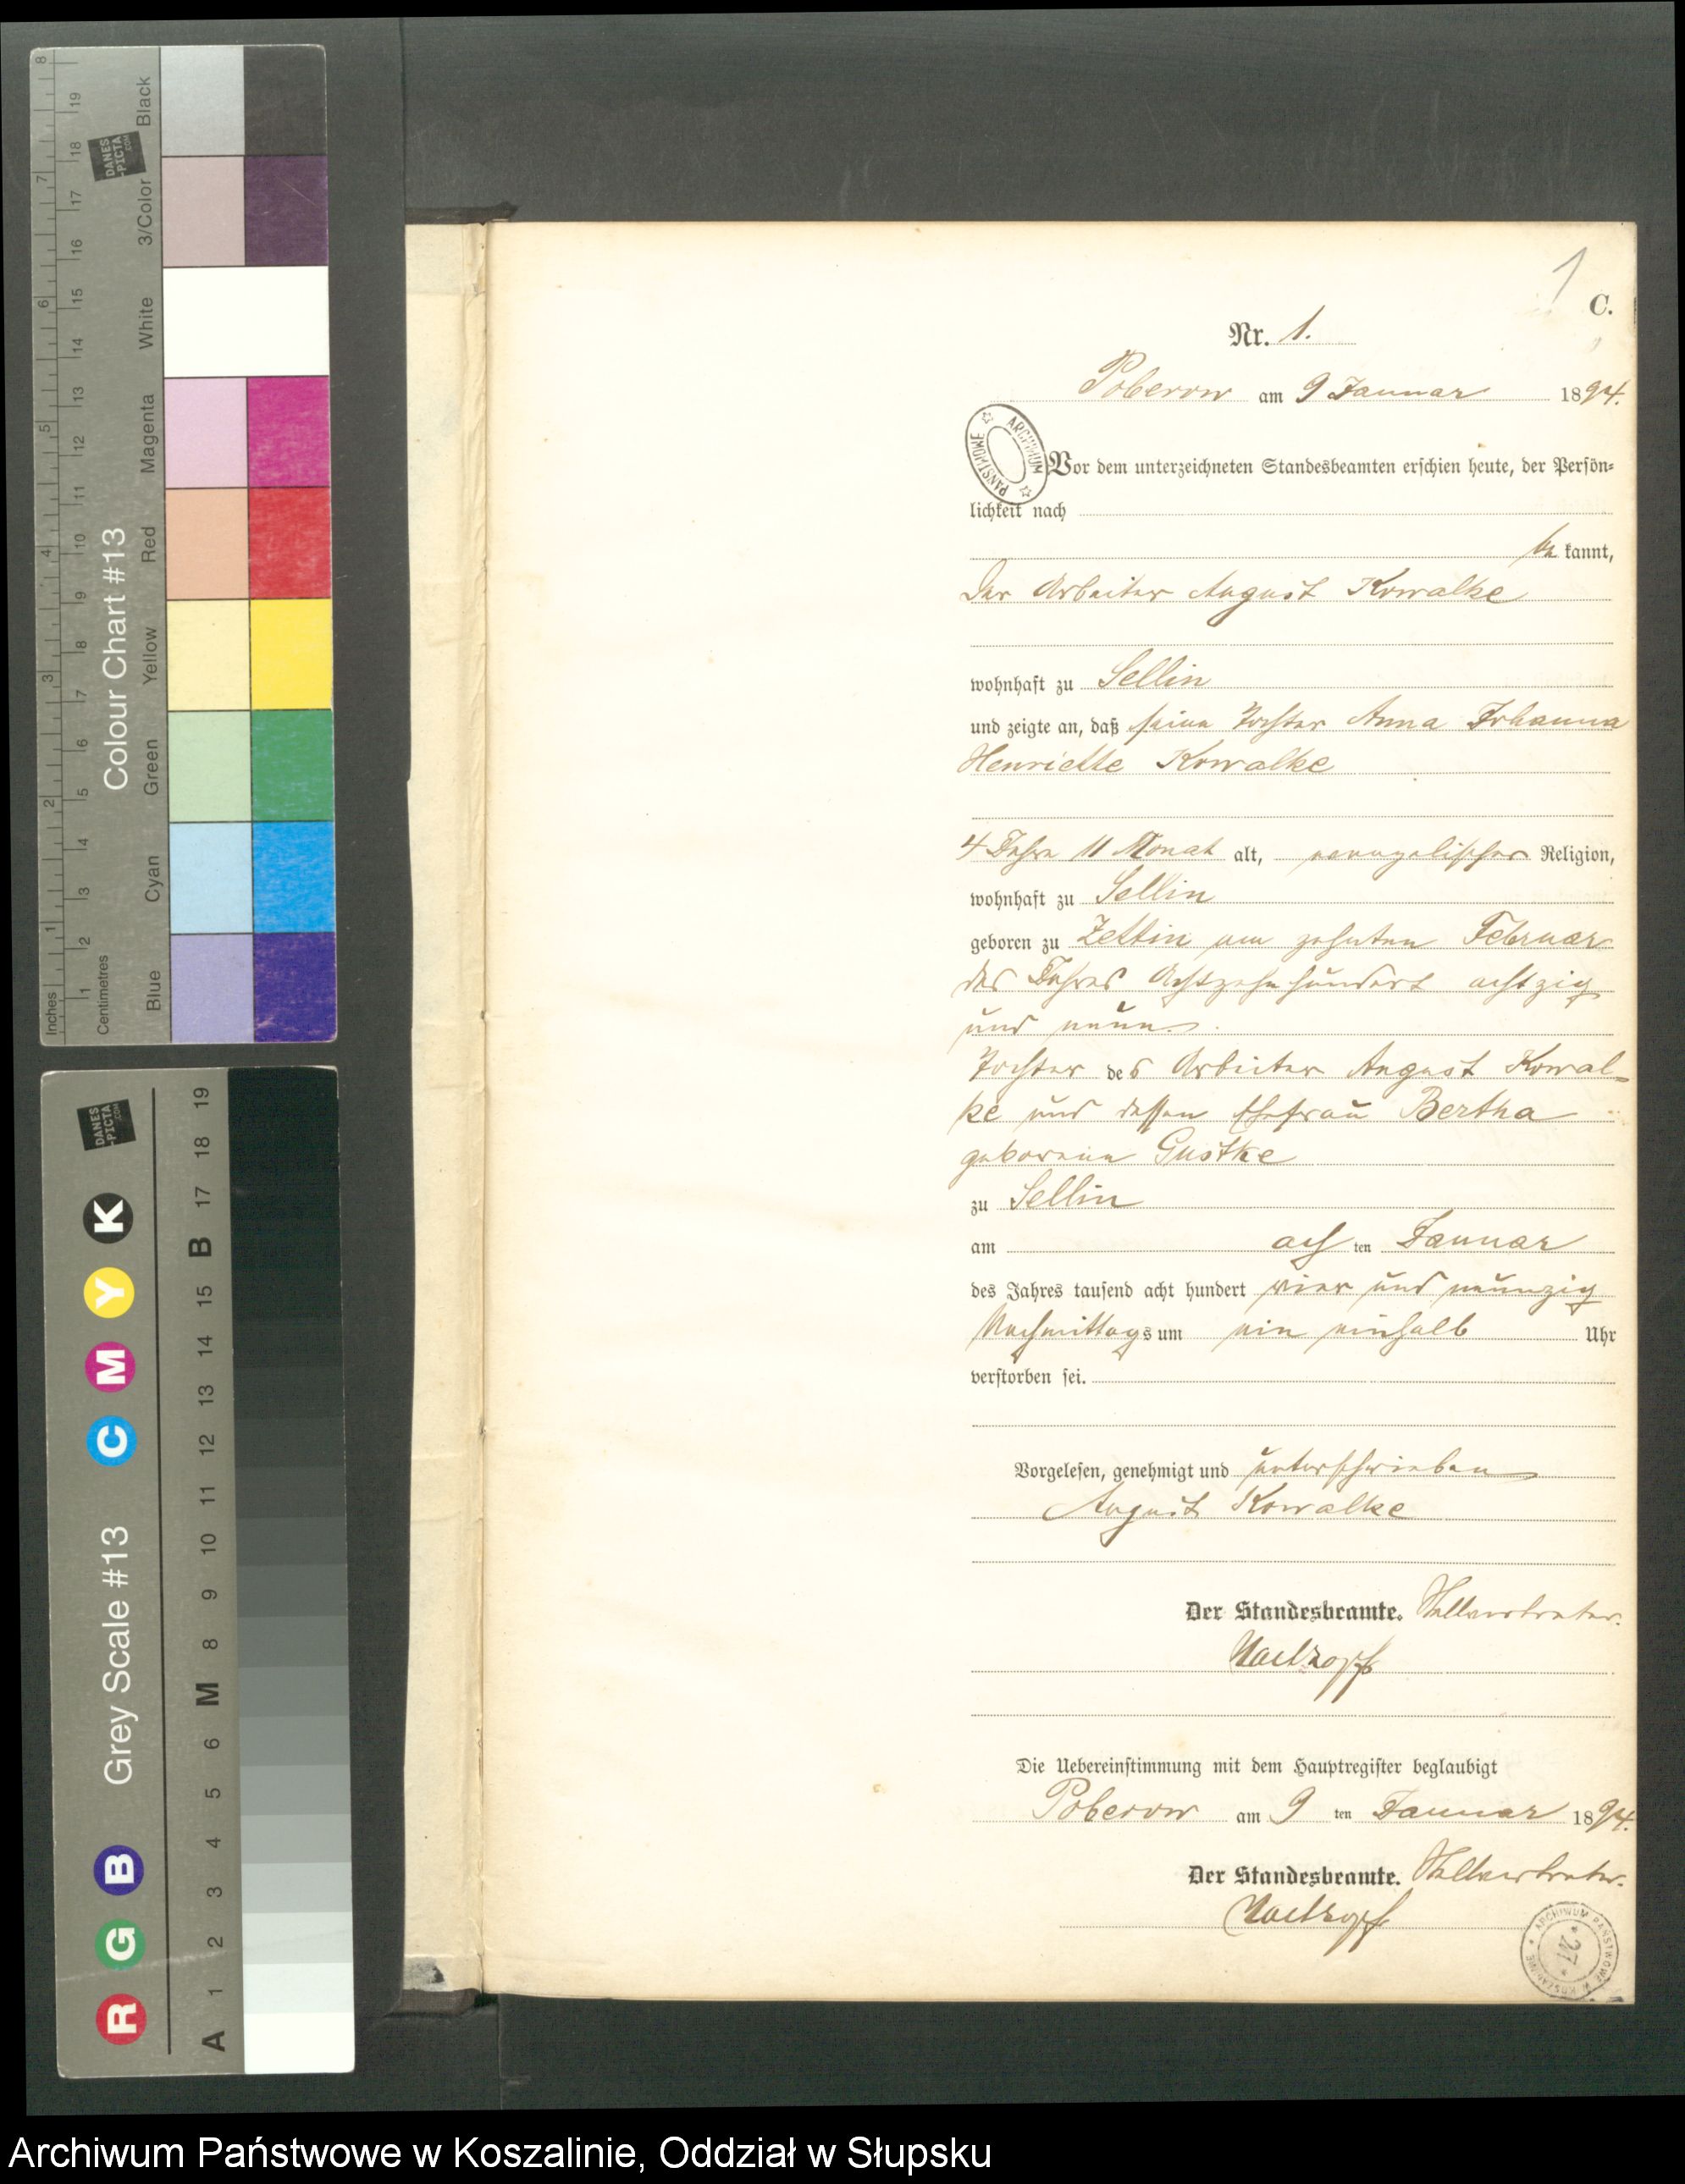 8
19
18
17
16
15
14
13
12
11
10
9
8
7
6
5
4
3
2
1
7
6
5
4
3
2
1
Inches
Centimetres
DANES
-PICTA
.COM
Colour Chart #13
Blue
Cyan
Green
Yellow
Red
Magenta
White
3/Color
Black
DANES
-PICTA
.COM
Grey Scale #13
R G B C M Y K
A 1 2 3 4 5 6 M 8 9 10 11 12 13 14 15 B 17 18 19
1
C.
Nr. 1.
Poberow am 9 Januar 1894.
ARCHIWUM PAŃSTWOWE
Vor dem unterzeichneten Standesbeamten erschien heute, der Persön-
lichkeit nach
be kannt,
Der Arbeiter August Kowalke
wohnhaft zu Sellin
und zeigte an, daß seine Tochter Anna Johanna
Henriette Kowalke
4 Jahre 11 Monat alt, evangelischer Religion,
wohnhaft zu Sellin
geboren zu Zettin am zehnten Februar
des Jahres Achtzehnhundert achtzig
und neun.
Tochter des Arbeiter August Kowal-
ke und dessen Ehefrau Bertha
geborene Gustke
zu Sellin
am ach ten Januar
des Jahres tausend acht hundert vier und neunzig
Nachmittags um ein einhalb Uhr
verstorben sei.
Vorgelesen, genehmigt und unterschrieben
August Kowalke
Der Standesbeamte. Stellvertreter.
Die Uebereinstimmung mit dem Hauptregister beglaubigt
Poberow am 9 ten Januar 1894.
Der Standesbeamte. Stellvertreter.
ARCHIWUM PAŃSTWOWE W KOSZALINIE
27
Archiwum Państwowe w Koszalinie, Oddział w Słupsku